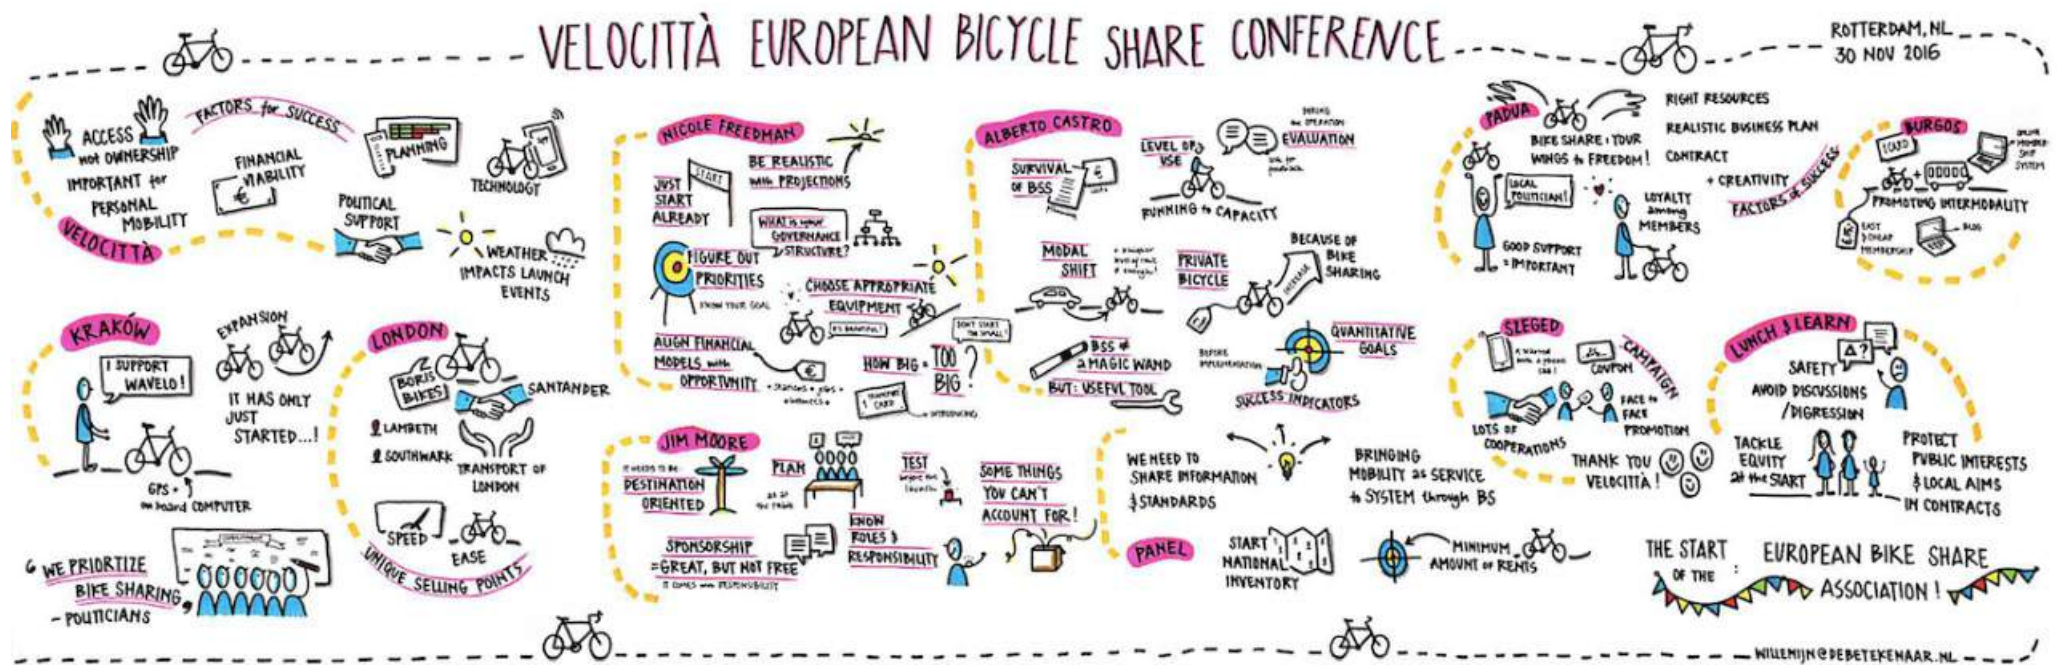 VELOCITTÀ EUROPEAN BICYCLE SHARE CONFERENCE
ROTTERDAM, NL
30 NOV 2016
ACCESS
not OWNERSHIP
IMPORTANT for
PERSONAL
MOBILITY
VELOCITTÀ
FACTORS for SUCCESS
FINANCIAL
VIABILITY
€
PLANNING
TECHNOLOGY
POLITICAL
SUPPORT
WEATHER
IMPACTS LAUNCH
EVENTS
KRAKÓW
I SUPPORT
WAVELO!
EXPANSION
IT HAS ONLY
JUST
STARTED...!
GPS +
on board COMPUTER
WE PRIORITIZE
BIKE SHARING
- POLITICIANS
LONDON
BORIS
BIKES
SANTANDER
LAMBETH
SOUTHWARK
TRANSPORT OF
LONDON
SPEED
EASE
UNIQUE SELLING POINTS
NICOLE FREEDMAN
JUST
START
ALREADY
START
BE REALISTIC
with PROJECTIONS
WHAT is your
GOVERNANCE
STRUCTURE?
FIGURE OUT
PRIORITIES
KNOW YOUR GOAL
CHOOSE APPROPRIATE
EQUIPMENT
IT'S BEAUTIFUL!
DON'T START
TOO SMALL!
ALIGN FINANCIAL
MODELS with
OPPORTUNITY
€
HOW BIG = TOO
BIG?
JIM MOORE
IT NEEDS TO BE
DESTINATION
ORIENTED
PLAN
TEST
before the
launch
SOME THINGS
YOU CAN'T
ACCOUNT FOR!
SPONSORSHIP
=GREAT, BUT NOT FREE
IT COMES with RESPONSIBILITY
KNOW
ROLES &
RESPONSIBILITY
ALBERTO CASTRO
SURVIVAL
OF BSS
LEVEL OF
USE
RUNNING to CAPACITY
DURING
the OPERATION
EVALUATION
MODAL
SHIFT
PRIVATE
BICYCLE
INCREASE
BECAUSE OF
BIKE
SHARING
BSS ≠
a MAGIC WAND
BUT: USEFUL TOOL
BEFORE
IMPLEMENTATION
QUANTITATIVE
GOALS
SUCCESS INDICATORS
PANEL
WE NEED TO
SHARE INFORMATION
& STANDARDS
BRINGING
MOBILITY as SERVICE
to SYSTEM through BS
START
NATIONAL
INVENTORY
MINIMUM
AMOUNT OF RENTS
PADUA
BIKE SHARE: YOUR
WINGS to FREEDOM!
LOCAL
POLITICIAN!
GOOD SUPPORT
= IMPORTANT
LOYALTY
among
MEMBERS
RIGHT RESOURCES
REALISTIC BUSINESS PLAN
CONTRACT
+ CREATIVITY
FACTORS of SUCCESS
BURGOS
1 CARD
ONLINE
MEMBER-
SHIP
SYSTEM
PROMOTING INTERMODALITY
EASY
& CHEAP
MEMBERSHIP
BLOG
SZEGED
COUPON
CAMPAIGN
LOTS OF
COOPERATIONS
FACE to
FACE
PROMOTION
THANK YOU
VELOCITTÀ!
LUNCH & LEARN
SAFETY
AVOID DISCUSSIONS
/DIGRESSION
TACKLE
EQUITY
at the START
PROTECT
PUBLIC INTERESTS
& LOCAL AIMS
IN CONTRACTS
THE START
OF THE :
EUROPEAN BIKE SHARE
ASSOCIATION!
WILLEMIJN@DEBETEKENAAR.NL